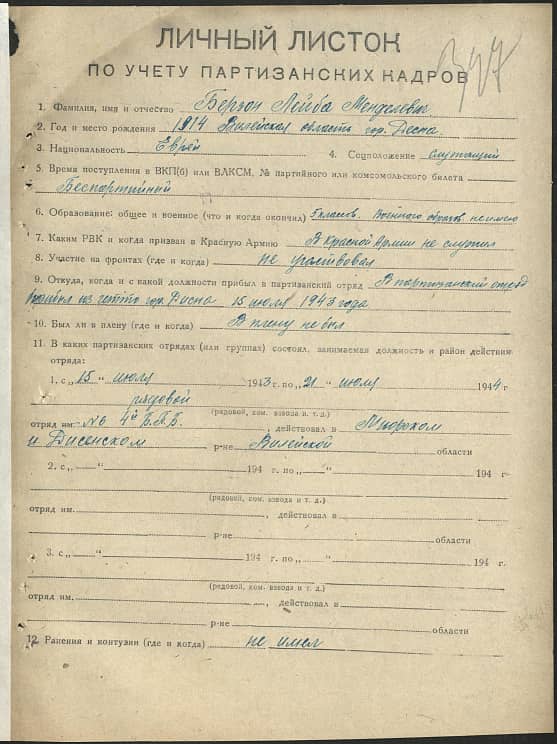 397
ЛИЧНЫЙ ЛИСТОК
ПО УЧЕТУ ПАРТИЗАНСКИХ КАДРОВ
1. Фамилия, имя и отчество Берзон Лейба Менделевич
2. Год и место рождения 1914 Вилейская область гор. Десна.
3. Национальность Еврей 4. Соцположение служащий
5. Время поступления в ВКП(б) или ВЛКСМ, № партийного или комсомольского билета
Беспартийный
6. Образование: общее и военное (что и когда окончил) 5 классов. Военного образов не имею
7. Каким РВК и когда призван в Красную Армию В Красной Армии не служил
8. Участие на фронтах (где и когда) не участвовал
9. Откуда, когда и с какой должности прибыл в партизанский отряд В партизанский отряд
прибыл из гетто гор. Десна 15 июля 1943 года
10. Был ли в плену (где и когда) В плену не был
11. В каких партизанских отрядах (или группах) состоял, занимаемая должность и район действия
отряда:
1. с „15 “ июля 1943 г. по „21 “ июля 1944 г
рядовой
(рядовой, ком. взвода и т. д.)
отряд им. №6 4й Б.П.Б. , действовал в Миорском
и Дисенском р-не Вилейской области
2. с „ “ 194 г. по „ “ 194 г.
(рядовой, ком. взвода и т. д.)
отряд им. , действовал в
р-не области
3. с „ “ 194 г. по „ “ 194 г.
(рядовой, ком. взвода и т. д.)
отряд им. , действовал в
р-не области
12. Ранения и контузии (где и когда) не имел